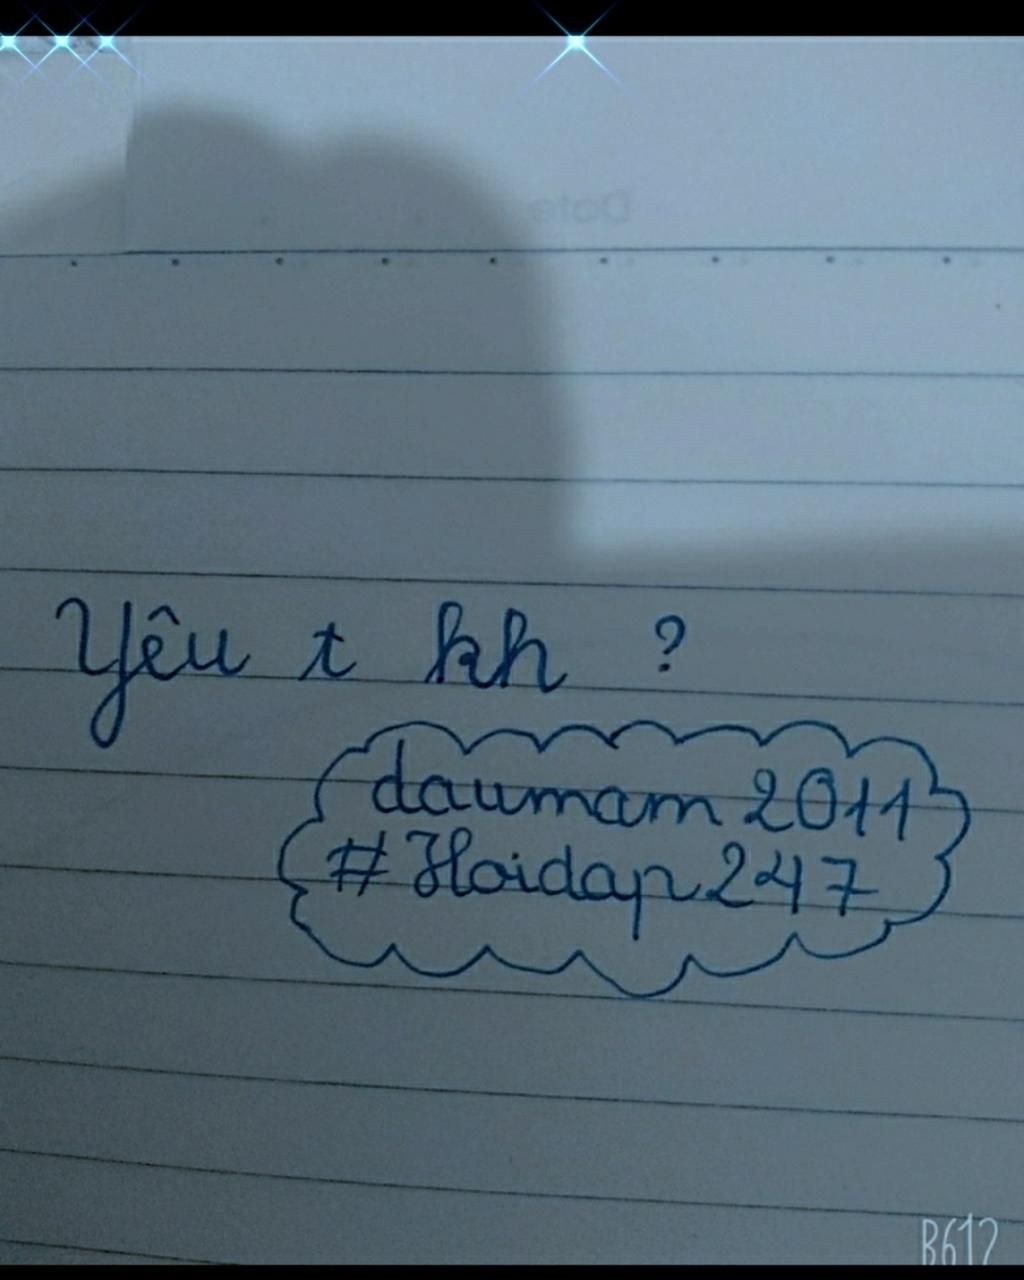 Date
Yêu t kh ?
daumam 2011
#Hoidap247
B612